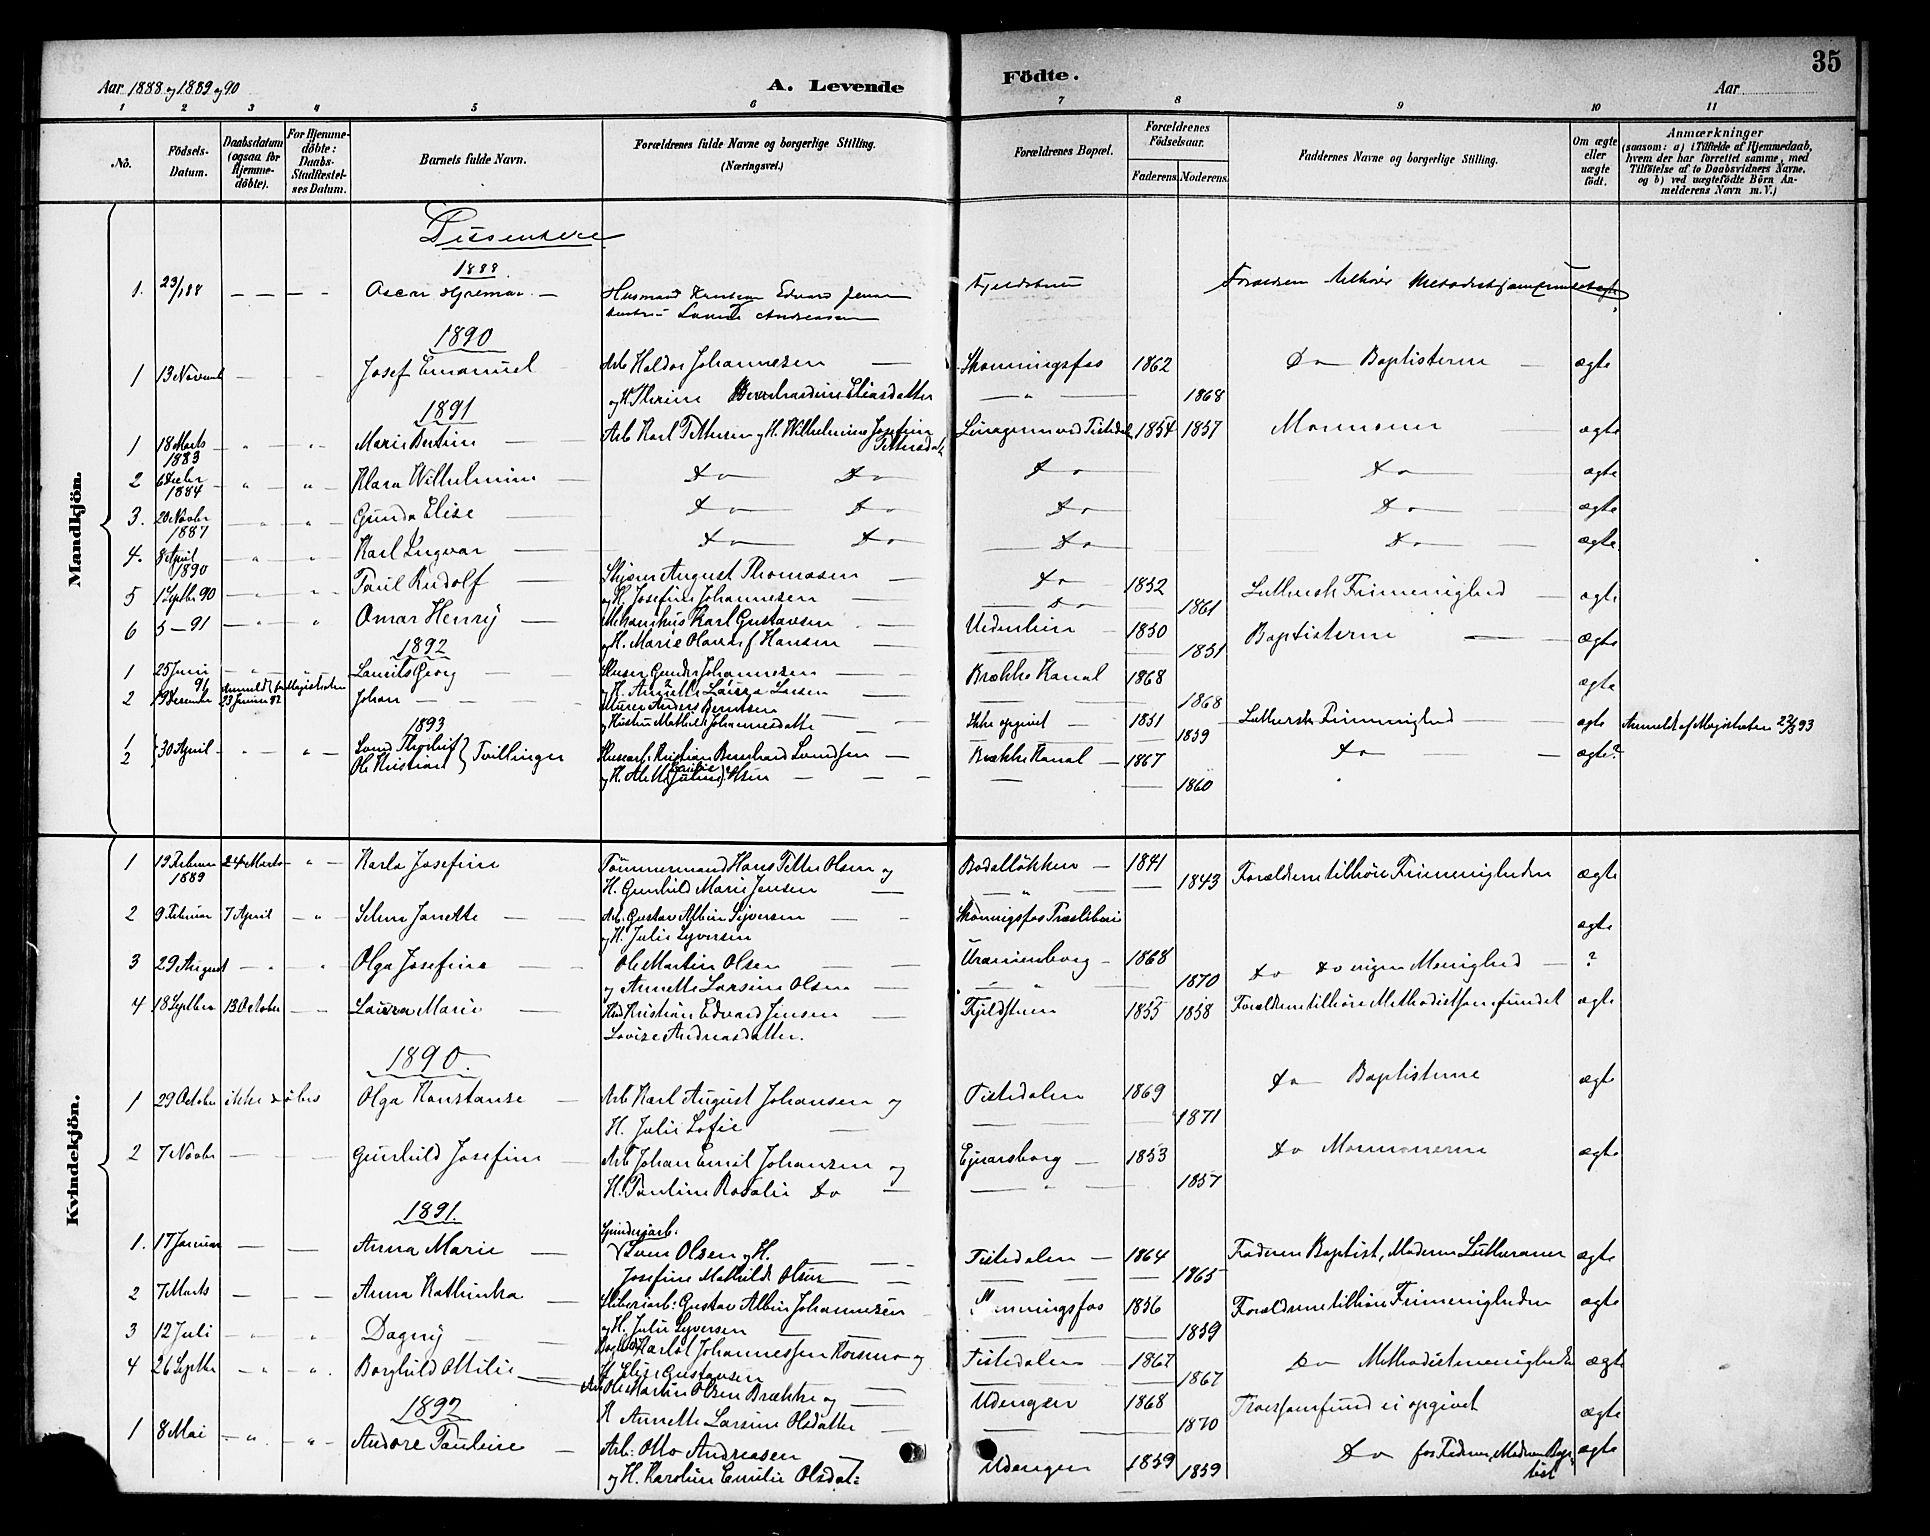 35
Aar 1888 og 1889 og 90
A. Levende
Födte.
Aar
1 2 3 4 5 6 7 8 9 10 11
No.
Födsels-Datum.
Daabsdatum (ogsaa for Hjemmedöbte).
For Hjemmedöbte: Daabs-Stadfæstelses Datum.
Barnets fulde Navn.
Forældrenes fulde Navne og borgerlige Stilling. (Næringsvei.)
Forældrenes Bopæl.
Forældrenes Födselsaar.
Faderens. Moderens.
Faddernes Navne og borgerlige Stilling.
Om ægte eller uægte födt.
Anmærkninger (saasom: a) i Tilfælde af Hjemmedaab, hvem der har forrettet samme, med Tilföielse af to Daabsvidners Navne, og b) ved uægtefödte Börn Anmelderens Navn m. V.)
Mandkjön.
Dissentere
1888.
1. 23/1 88 — — — — Oscar Hjelmar — Husmand Edvard Jensen Fjeldstuen Forældren tilhører Methodistsamfundet ægte
Hustru Lovise Andreasen
1890
1 13 Novemb — — Josef Emanuel Arb. Haldor Johannesen Skonningsfos 1862 Do Baptisterne ægte
og H. Bernhardine Eliasdatter — " — 1868
1891
1 18 Marts 1883 " " Marie Bertine Arb. Karl Pettersen og H. Wilhelmine Josefine Pettersdat ved Tistedal 1854 1857 Mormoner ægte
2 6 Decbr 1884 " " Klara Wilhelmine Do Do Do Do ægte
3. 20 Novbr 1887 " " Gunda Elise Do Do Do Do ægte
4. 8 April 1890 " " Karl Ingvar Do Do Do Do ægte
5 1 Septbr 90 " " Paul Rudolf August Thomasen Do 1852 Luthersk Frimenighed ægte
og H. Josefine Johannesen Do 1861
6 5 — 91 " " Omar Henry Mekanikus Karl Gustavsen 1850 Baptisterne ægte
og H. Marie Olava f. Hansen 1851
1892
1 25 Juni 91 — " — Laurits Georg Gunder Johannesen Brække Kanal 1868 ægte
og H. Annette Laurza Larsen 1868
2 19 Desember Anmeldt for Magistraten 23 Januar 92 Johan — Murer Anders Berntsen Ikke opgivet 1851 Luthersk Frimenighed ægte Anmeldt af Magistraten 22/3 93
og Hustru Mathilde Johannesdatter 1859
1893
1 2 30 April " " Lund Thorleif Ole Kristian } Tvillinger Kristian Bernhard Lundsen Brække Kanal 1867 Do ægte?
og H. Olsen 1860
Kvindekjön.
1 19 Februar 1889 24 Marts — " — Karla Josefine Tømmermand Hans Petter Olsen og Bodalløkken 1841 Forældrene tilhøre Frimenigheden ægte
H. Gunhild Marie Jensen — " — 1843
2 9 Februar 7 April — " Selma Janette Arb. Gustav Albin Syversen Skonningsfos Træsliberi ægte
og H. Julie Syversen
3 29 August " " Olga Josefine Ole Martin Olsen Uranienborg 1868 Do Do ingen Menighed ?
og Annette Larsine Olsen " 1870
4 18 Septbr 13 October — — Laura Marie Kristian Edvard Jensen Fjeldstuen 1855 1858 Forældrene tilhøre Methodistsamfundet ægte
Lovise Andreasdatter.
1890.
1 29 October ikke døbes Olga Konstanse Arb. Karl August Johansen og Tistedalen 1869 Do Baptisterne ægte
H. Julie Sofie 1871
2 7 Novbr — — Gunhild Josefine Arb Johan Emil Johansen og Ejnarsborg 1853 Do Mormonerne ægte
H. Pauline Rosalie Do " 1857
1891
1. 17 Januar — — Anna Marie Spinderiarb. Sven Olsen og H. Tistedalen 1864 Faderen Baptist, Moderen Lutheraner ægte
Josefine Mathilde Olsen 1865
2 7 Marts — — Anna Kathinka Sliberiarb: Gustav Albin Johannesen Skonningsfos 1856 Forældrene tilhøre Frimenigheden ægte
og H. Julie Syversen 1859
3 12 Juli " " Dagny Karl Johannessen Korsmo og Tistedalen 1867 Do Methodistmenigheden ægte
H. Elise Gustavsen 1867
4 26 Septbr " " Borghild Ottilie Arb. Ole Martin Olsen Brække og Udengen 1868 Troessamfund ei opgivet ægte
H Annette Larsine Olsdatter 1870
1892
1 8 Mai " " Andore Pauline Arb: Otto Andreasen Udengen 1859 1859 Do for Faderen, Moderen Baptist ægte
og H. Karoline Emilie Olsdat: